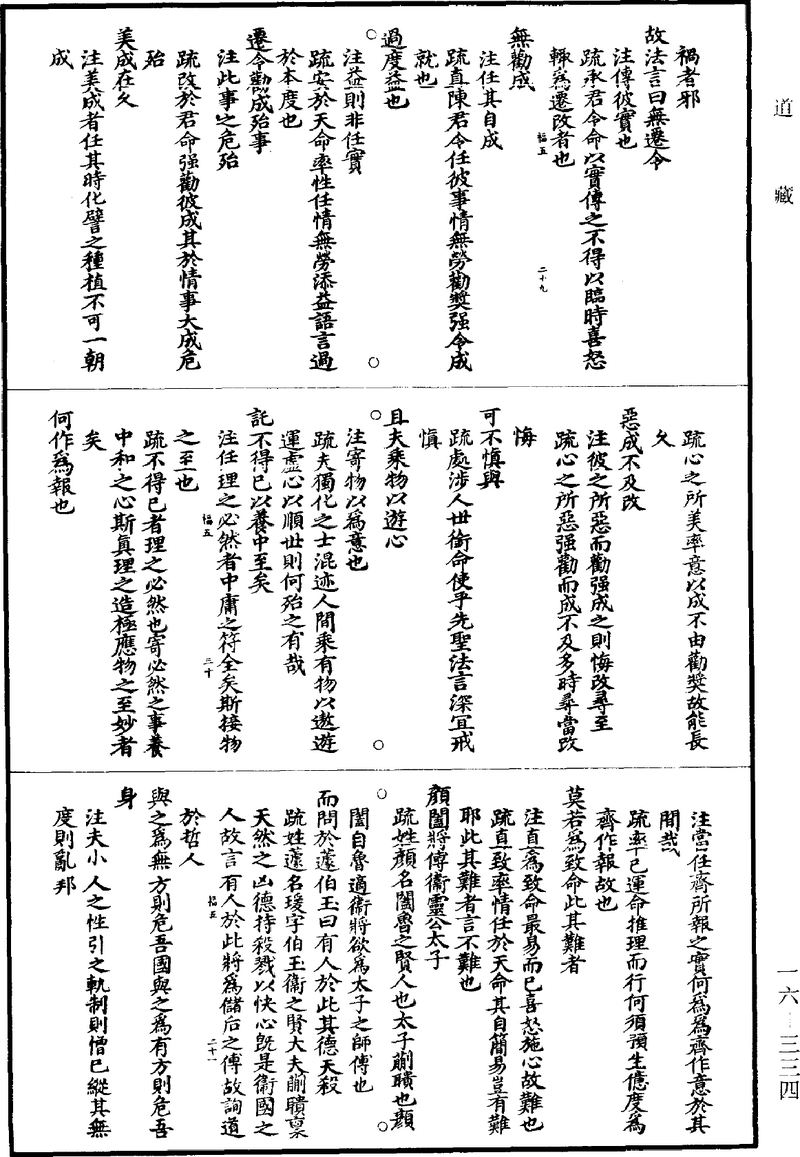 道藏
禍者邪
故法言曰無遷令
注傳彼實也
疏承君令命以實傳之不得以臨時喜怒
輙為遷改者也
福五
二十九
無勸成
注任其自成
疏直陳君令任彼事情無勞勸獎强令成
就也
過度益也
注益則非任實
疏安於天命率性任情無勞添益語言過
於本度也
遷令勸成殆事
注此事之危殆
疏改於君命强勸彼成其於情事大成危
殆
美成在久
注美成者任其時化譬之種植不可一朝
成
疏心之所美率意以成不由勸獎故能長
久
惡成不及改
注彼之所惡而勸强成之則悔改尋至
疏心之所惡强勸而成不及多時尋當改
悔
可不慎與
疏處涉人世銜命使乎先聖法言深宜戒
慎
且夫乘物以遊心
注寄物以為意也
疏夫獨化之士混迹人間乘有物以遨遊
運虚心以順世則何殆之有哉
託不得已以養中至矣
注任理之必然者中庸之符全矣斯接物
福五
三十
之至也
疏不得已者理之必然也寄必然之事養
中和之心斯真理之造極應物之至妙者
矣
何作為報也
注當任齊所報之實何為為齊作意於其
間哉
疏率己運命推理而行何須預生億度為
齊作報故也
莫若為致命此其難者
注直為致命最易而已喜怒施心故難也
疏直致率情任於天命其自簡易豈有難
耶此其難者言不難也
顔闔將傅衛靈公太子
疏姓顔名闔魯之賢人也太子蒯聵也顔
闔自魯適衛將欲為太子之師傅也
而問於蘧伯玉曰有人於此其德天殺
疏姓蘧名瑗字伯玉衛之賢大夫蒯聵稟
天然之凶德持殺戮以快心既是衛國之
人故言有人於此將為儲后之傅故詢道
福五
三十一
於哲人
與之為無方則危吾國與之為有方則危吾
身
注夫小人之性引之軌制則憎己縱其無
度則亂邦
一六—三三四